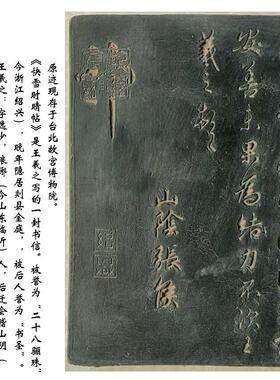 王羲之：字逸少，琅琊（今山东临沂）人，后迁会稽山阴（
今浙江绍兴），晚年隐居剡县金庭，被后人誉为“书圣”。
《快雪时晴帖》是王羲之写的一封书信。被誉为“二十八骊珠”
原迹现存于台北故宫博物院。
安善未果為結力不次王
羲之頓首
山陰張侯